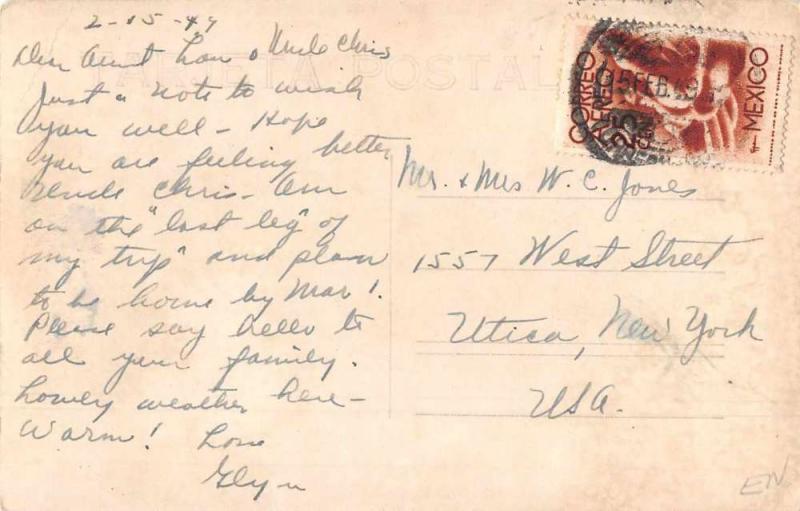 2-15-49
Dear Aunt Lou & Uncle Chris
TARJETA POSTAL
Just a note to wish
you well - Hope
you are feeling better
Uncle Chris - Am
on the "last leg" of
my trip" and plan
to be home by Mar 1.
Please say hello to
all your family.
Lovely weather here -
Warm! Love
Glyn
CORREO
AEREO
25
MEXICO
15 FEB. 49
Mr. & Mrs W. C. Jones
1557 West Street
Utica, New York
USA.
EN